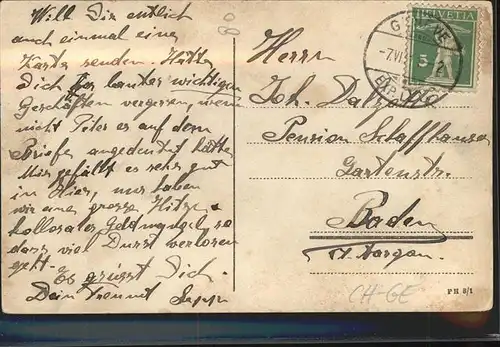 Will Dir endlich
auch einmal eine
Karte senden. Hätte
Dich vor lauter wichtigen
Geschäften vergessen, wenn
nicht Peter es auf dem
Briefe angedeutet hätte
Mir gefällt es sehr gut
im Hier, nur haben
wir eine grosse Hitze.
kollosaler Geldmangel, so
dass viel Durst verloren
geht. Es grüsst Dich.
Dein Freund Sepp
80
Herrn
Joh.
Pension Schaffhausen
Gartenstr.
Baden
Kt. Aargau.
CH-GE
HELVETIA
5
GENÈVE
-7.VI
2
EXP. LETT.
PH 8/1